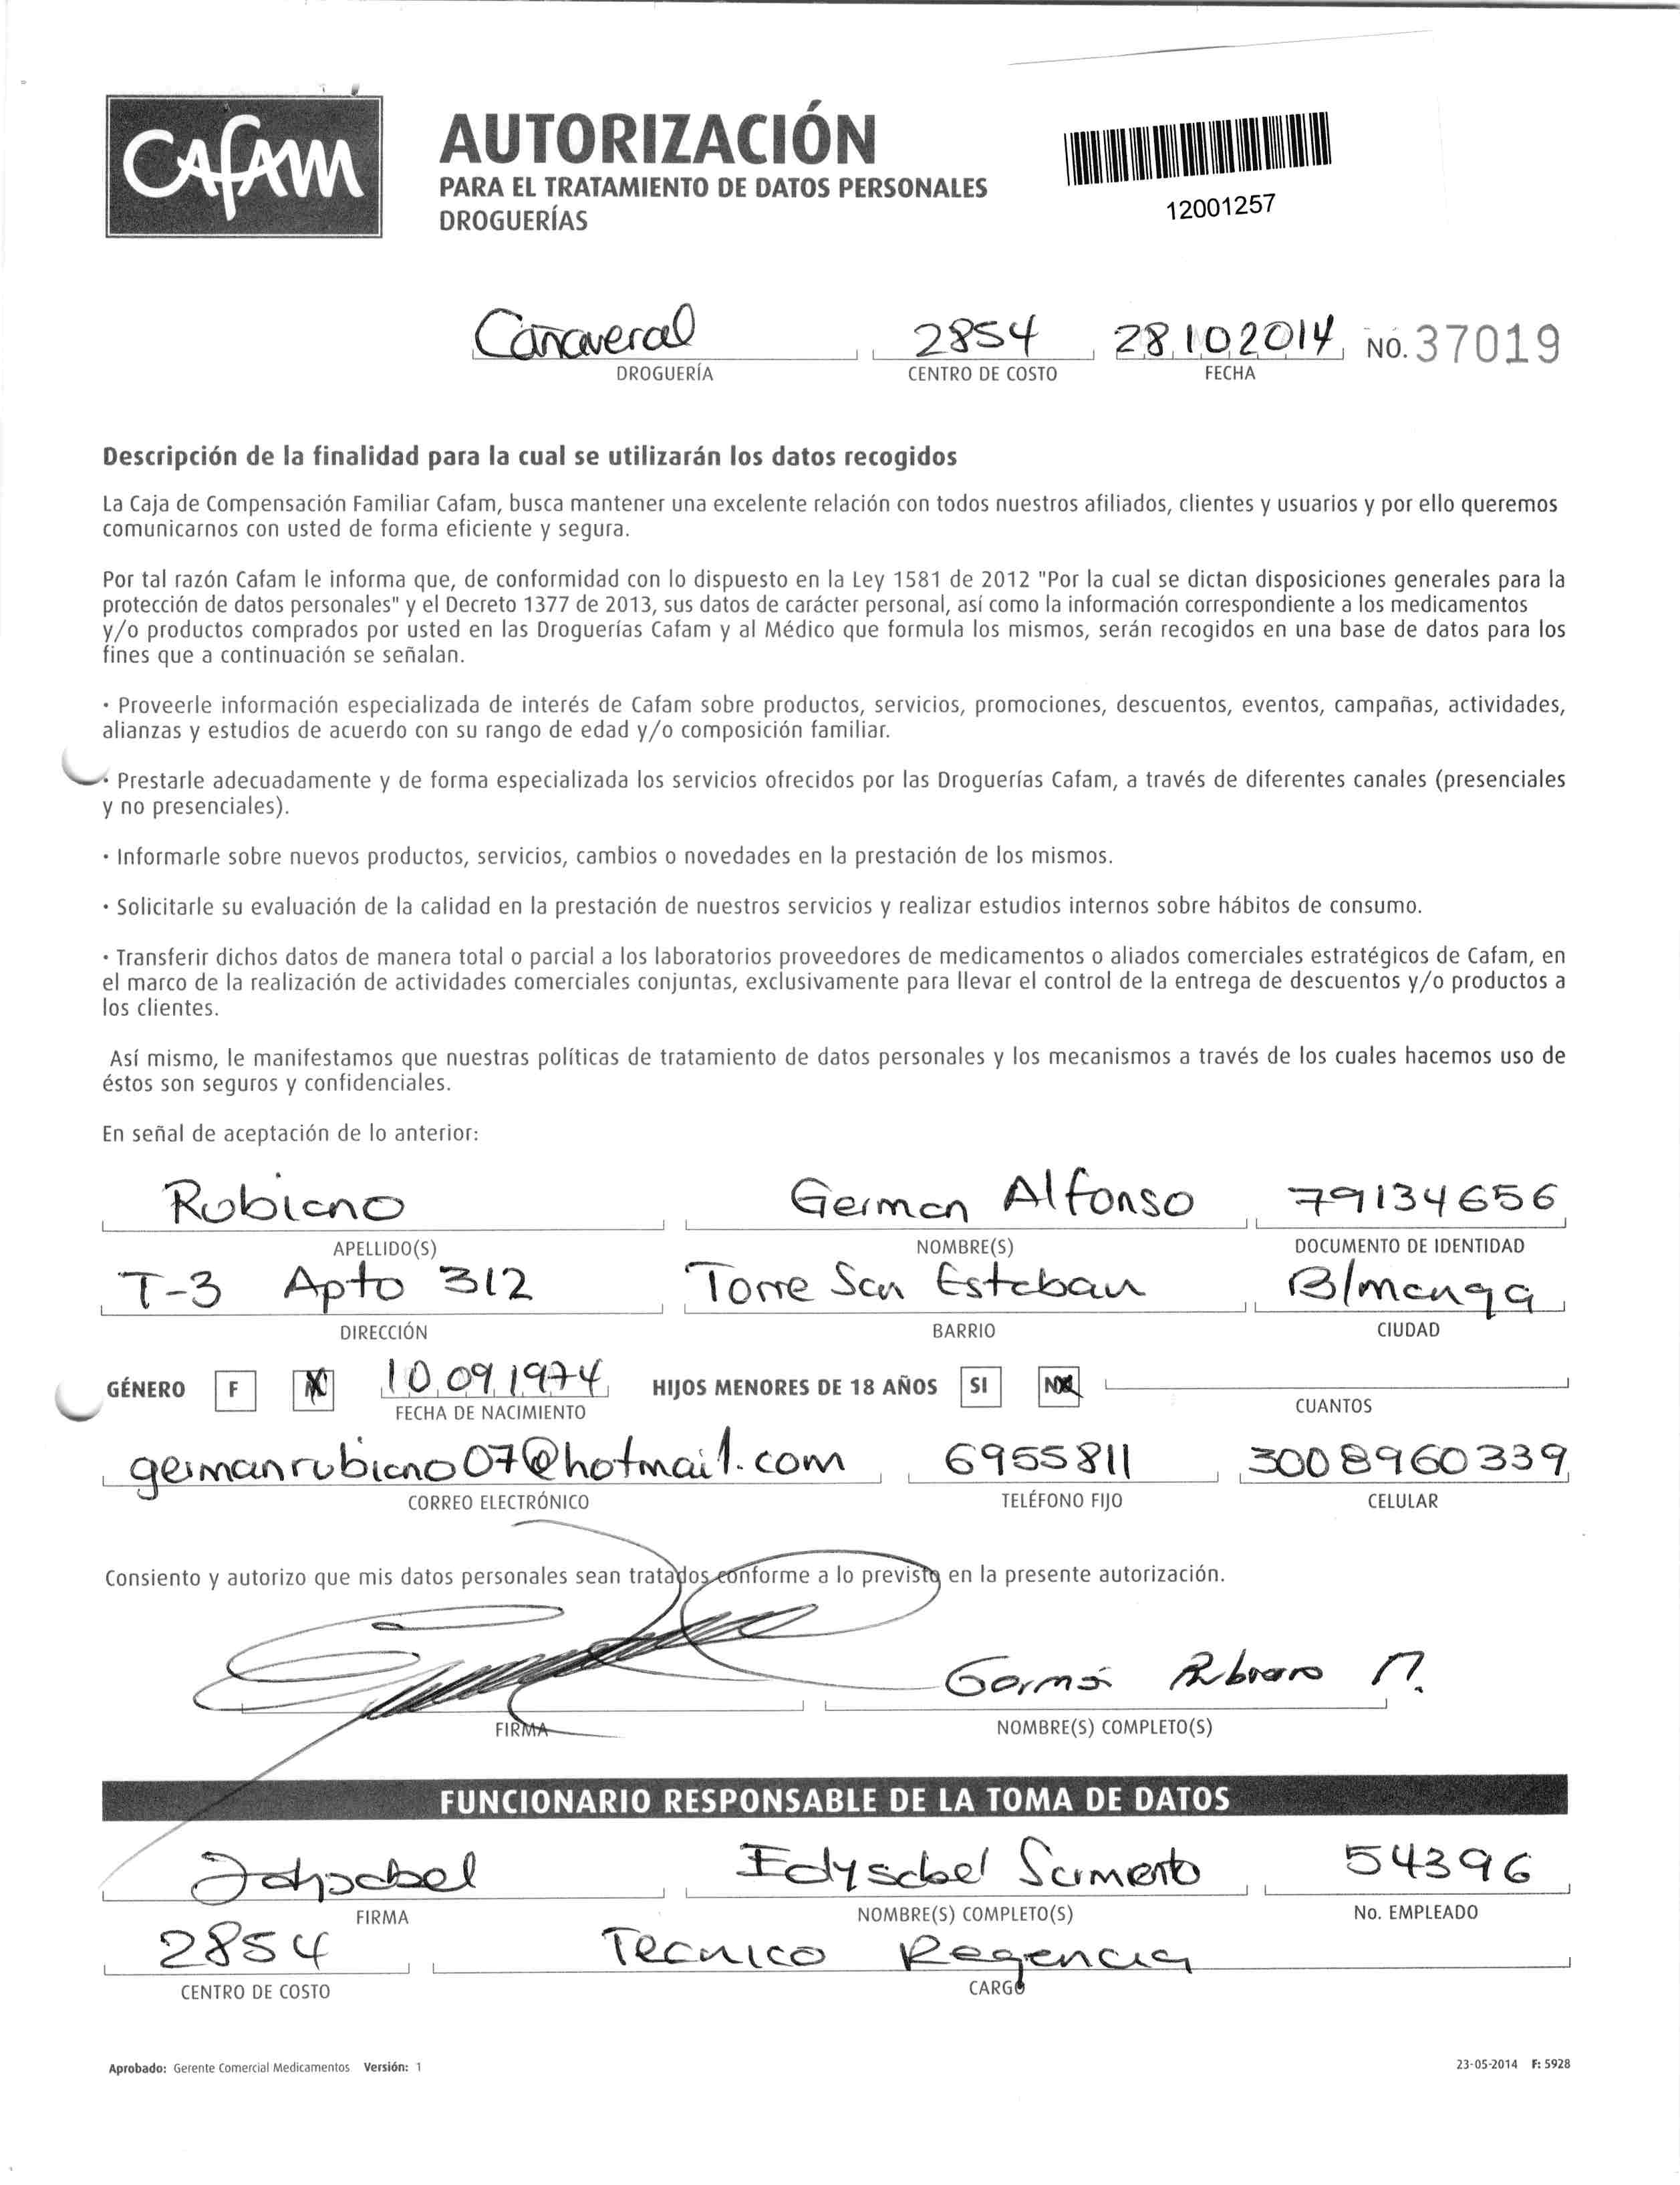 CAFAM
AUTORIZACIÓN
PARA EL TRATAMIENTO DE DATOS PERSONALES
DROGUERÍAS
12001257
Cañaveral 2854 28 10 2014 NO. 37019
DROGUERÍA CENTRO DE COSTO FECHA
Descripción de la finalidad para la cual se utilizarán los datos recogidos
La Caja de Compensación Familiar Cafam, busca mantener una excelente relación con todos nuestros afiliados, clientes y usuarios y por ello queremos
comunicarnos con usted de forma eficiente y segura.
Por tal razón Cafam le informa que, de conformidad con lo dispuesto en la Ley 1581 de 2012 "Por la cual se dictan disposiciones generales para la
protección de datos personales" y el Decreto 1377 de 2013, sus datos de carácter personal, así como la información correspondiente a los medicamentos
y/o productos comprados por usted en las Droguerías Cafam y al Médico que formula los mismos, serán recogidos en una base de datos para los
fines que a continuación se señalan.
· Proveerle información especializada de interés de Cafam sobre productos, servicios, promociones, descuentos, eventos, campañas, actividades,
alianzas y estudios de acuerdo con su rango de edad y/o composición familiar.
· Prestarle adecuadamente y de forma especializada los servicios ofrecidos por las Droguerías Cafam, a través de diferentes canales (presenciales
y no presenciales).
· Informarle sobre nuevos productos, servicios, cambios o novedades en la prestación de los mismos.
· Solicitarle su evaluación de la calidad en la prestación de nuestros servicios y realizar estudios internos sobre hábitos de consumo.
· Transferir dichos datos de manera total o parcial a los laboratorios proveedores de medicamentos o aliados comerciales estratégicos de Cafam, en
el marco de la realización de actividades comerciales conjuntas, exclusivamente para llevar el control de la entrega de descuentos y/o productos a
los clientes.
Así mismo, le manifestamos que nuestras políticas de tratamiento de datos personales y los mecanismos a través de los cuales hacemos uso de
éstos son seguros y confidenciales.
En señal de aceptación de lo anterior:
Rubiano German Alfonso 79134656
APELLIDO(S) NOMBRE(S) DOCUMENTO DE IDENTIDAD
T-3 Apto 312 Torre San Esteban B/manga
DIRECCIÓN BARRIO CIUDAD
GÉNERO F 10 09 1974 HIJOS MENORES DE 18 AÑOS SI NO
FECHA DE NACIMIENTO CUANTOS
germanrubiano07@hotmail.com 6955811 3008960339
CORREO ELECTRÓNICO TELÉFONO FIJO CELULAR
Consiento y autorizo que mis datos personales sean tratados conforme a lo previsto en la presente autorización.
Germán Rubiano M.
FIRMA NOMBRE(S) COMPLETO(S)
FUNCIONARIO RESPONSABLE DE LA TOMA DE DATOS
Edysabel Sarmiento 54396
FIRMA NOMBRE(S) COMPLETO(S) No. EMPLEADO
2854 Tecnico Regencia
CENTRO DE COSTO CARGO
Aprobado: Gerente Comercial Medicamentos Versión: 1 23-05-2014 F: 5928